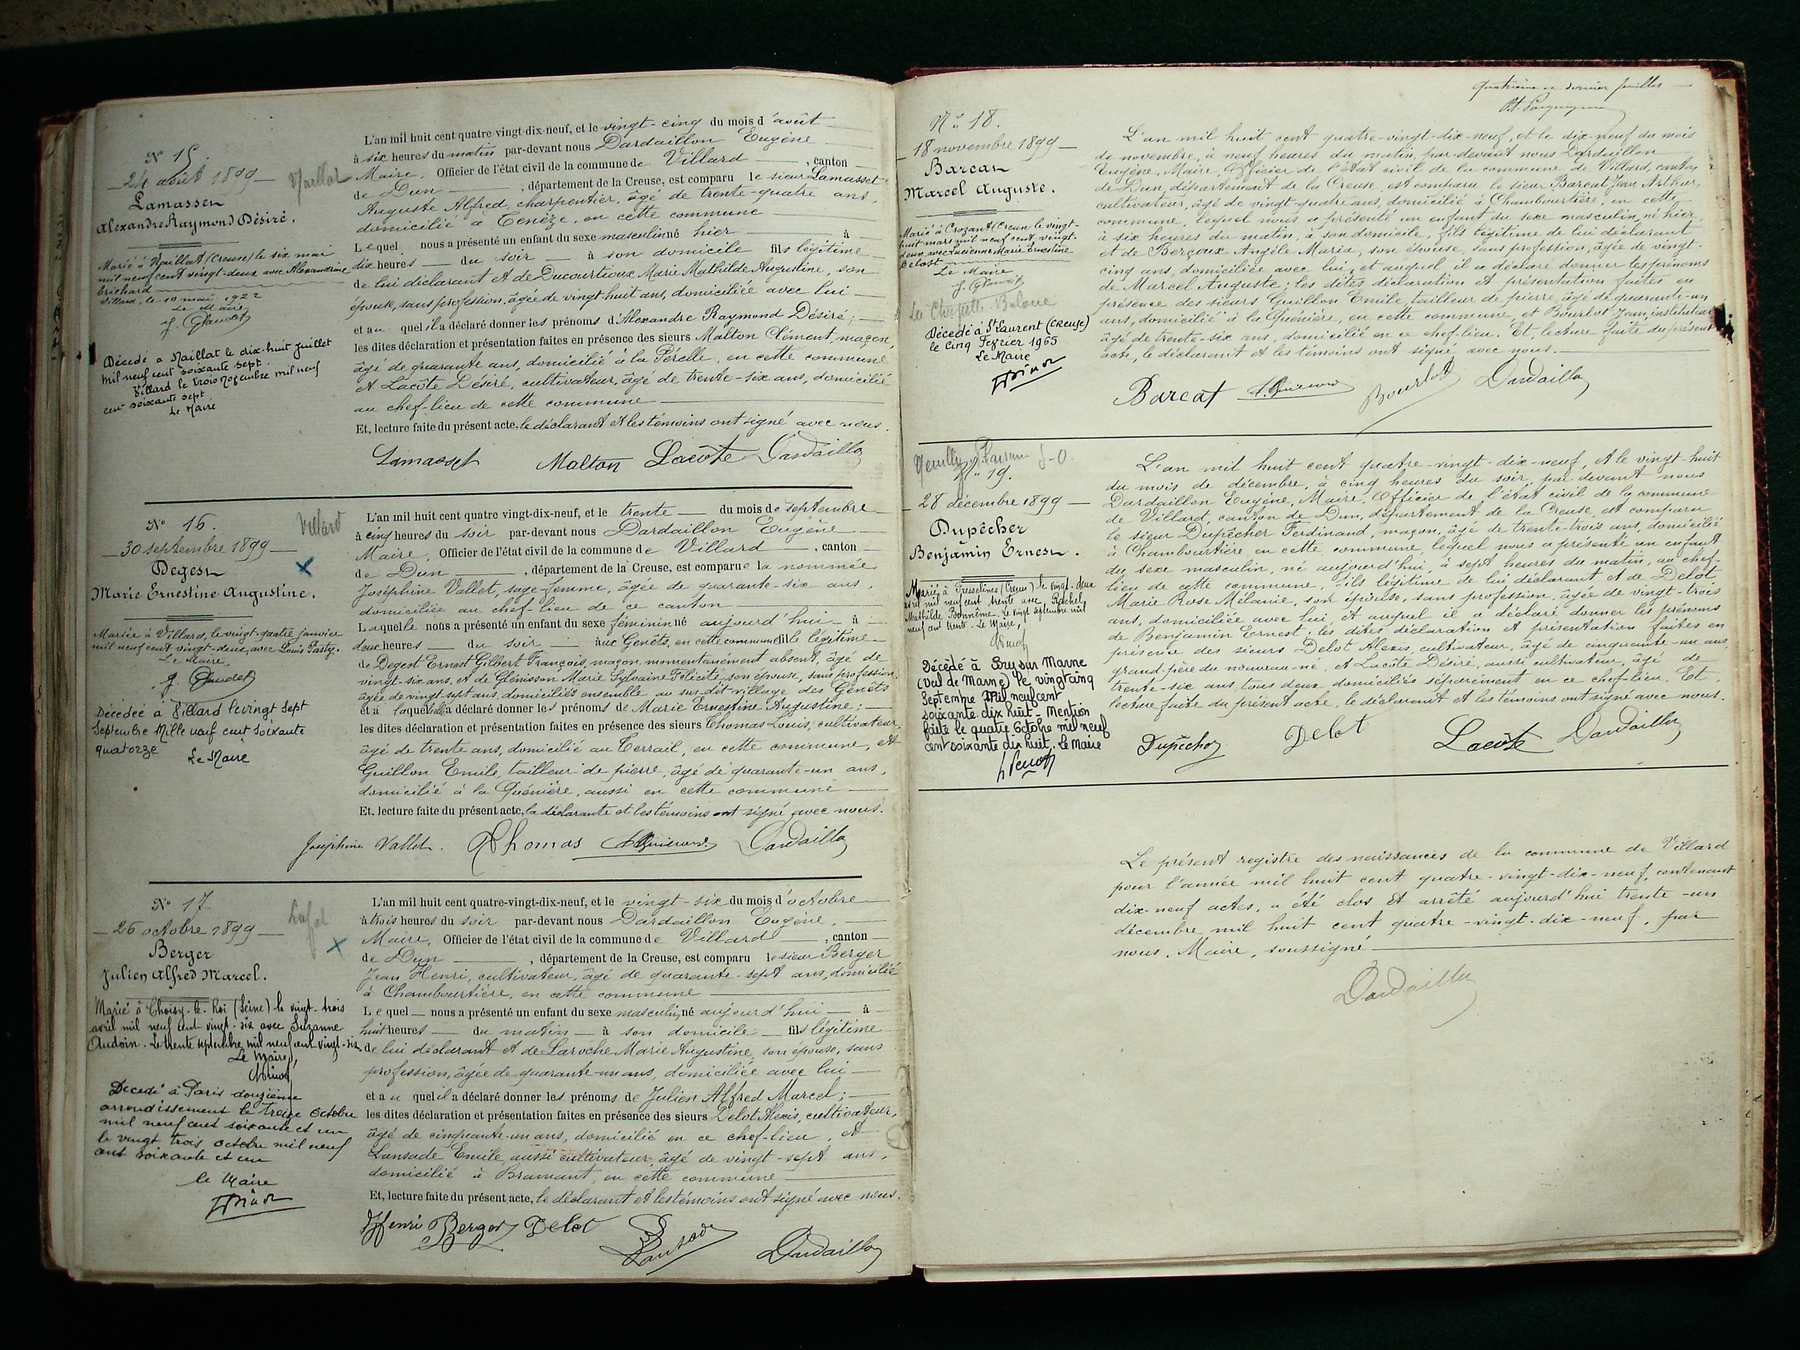 Nº 15.
24 août 1899
Naillat
Lamasset
Alexandre Raymond Désiré.
Marié à Naillat (Creuse) le six mai
mil neuf cent vingt-deux avec Alexandrine
Villard, le 10 mai 1922
Le Maire
J. Gaudet
Décédé à Naillat le dix-huit juillet
mil neuf cent soixante sept
Villard le trois novembre mil neuf
cent soixante sept
Le Maire
L'an mil huit cent quatre-vingt-dix-neuf, et le vingt-cinq du mois d'août
à six heures du matin par-devant nous Dardaillon Eugène
Maire, Officier de l'état civil de la commune de Villard, canton
de Dun, département de la Creuse, est comparu le sieur Lamasset
Auguste Alfred, charpentier, âgé de trente-quatre ans,
domicilié à Tenèze, en cette commune
Lequel nous a présenté un enfant du sexe masculin né hier à
dix heures du soir à son domicile fils légitime
de lui déclarant et de Ducourtioux Marie Mathilde Augustine, son
épouse, sans profession, âgée de vingt-huit ans, domiciliée avec lui
et auquel il a déclaré donner les prénoms d'Alexandre Raymond Désiré;
les dites déclaration et présentation faites en présence des sieurs Malton Clément, maçon,
âgé de quarante ans, domicilié à la Pérelle, en cette commune
et Lacôte Désiré, cultivateur, âgé de trente-six ans, domicilié
au chef-lieu de cette commune
Et, lecture faite du présent acte, le déclarant et les témoins ont signé avec nous.
Lamasset Malton Lacôte Dardaillon
Nº 16.
30 septembre 1899
Villard
Degest
Marie Ernestine Augustine.
Mariée à Villard, le vingt-quatre janvier
mil neuf cent vingt-deux, avec Louis Pasty.
Le Maire
J. Gaudet
Décédée à Villard le vingt sept
Septembre Mille neuf cent soixante
quatorze
Le Maire
L'an mil huit cent quatre vingt-dix-neuf, et le trente du mois de septembre
à cinq heures du soir par-devant nous Dardaillon Eugène
Maire, Officier de l'état civil de la commune de Villard, canton
de Dun, département de la Creuse, est comparue la nommée
Joséphine Vallet, sage-femme, âgée de quarante-six ans,
domiciliée au chef-lieu de ce canton
Laquelle nous a présenté un enfant du sexe féminin né aujourd'hui à
deux heures du soir aux Genêts, en cette commune fille légitime
de Degest Ernest Gilbert François, maçon momentanément absent, âgé de
vingt-six ans, et de Glénisson Marie Sylvaine Félicité, son épouse, sans profession,
âgée de vingt-sept ans, domiciliés ensemble au sus-dit village des Genêts
et à laquelle a déclaré donner les prénoms de Marie Ernestine Augustine;
les dites déclaration et présentation faites en présence des sieurs Thomas Louis, cultivateur,
âgé de trente ans, domicilié au Terrail, en cette commune, et
Guillon Emile, tailleur de pierre, âgé de quarante-un ans,
domicilié à la Quénière, aussi en cette commune
Et, lecture faite du présent acte, la déclarante et les témoins ont signé avec nous.
Joséphine Vallet. Thomas Dardaillon
Nº 17
26 octobre 1899
Berger
Julien Alfred Marcel.
Marié à Choisy-le-Roi (Seine) le vingt-trois
avril mil neuf cent vingt-six avec Suzanne
Audoin. Le trente septembre mil neuf cent vingt-six
Le Maire,
Décédé à Paris douzième
arrondissement le treize octobre
mil neuf cent soixante et un
le vingt trois octobre mil neuf
cent soixante et un
le Maire
L'an mil huit cent quatre-vingt-dix-neuf, et le vingt-six du mois d'octobre
à trois heures du soir par-devant nous Dardaillon Eugène,
Maire, Officier de l'état civil de la commune de Villard, canton
de Dun, département de la Creuse, est comparu le sieur Berger
Jean Henri, cultivateur, âgé de quarante-sept ans, domicilié
à Chambourtière, en cette commune
Lequel nous a présenté un enfant du sexe masculin, né aujourd'hui à
huit heures du matin à son domicile fils légitime
de lui déclarant et de Laroche Marie Augustine, son épouse, sans
profession, âgée de quarante-un ans, domiciliée avec lui
et au quel il a déclaré donner les prénoms de Julien Alfred Marcel;
les dites déclaration et présentation faites en présence des sieurs Delot Alexis, cultivateur,
âgé de cinquante-un ans, domicilié en ce chef-lieu, et
Lansade Emile, aussi cultivateur, âgé de vingt-sept ans,
domicilié à Bramant, en cette commune
Et, lecture faite du présent acte, le déclarant et les témoins ont signé avec nous.
Henri Berger Delot Lansade Dardaillon
quatrième et dernier feuillet
Nº 18.
18 novembre 1899
Barcat
Marcel Auguste.
Marié à Crozant (Creuse) le vingt-
huit mars mil neuf cent vingt-
deux avec Lucienne Marie Ernestine
Le Maire
J. Gaudet
La Chapelle Baloue
Décédé à St Laurent (Creuse)
le cinq Février 1965
Le Maire
L'an mil huit cent quatre-vingt-dix-neuf, et le dix-neuf du mois
de novembre, à neuf heures du matin, par-devant nous Dardaillon
Eugène, Maire, Officier de l'état civil de la commune de Villard, canton
de Dun, département de la Creuse, est comparu le sieur Barcat Jean Arthur,
cultivateur, âgé de vingt-quatre ans, domicilié à Chambourtière, en cette
commune, lequel nous a présenté un enfant du sexe masculin, né hier,
à six heures du matin, à son domicile, fils légitime de lui déclarant
et de Berçoux Angèle Maria, son épouse, sans profession, âgée de vingt-
cinq ans, domiciliée avec lui, et auquel il a déclaré donner les prénoms
de Marcel Auguste; les dites déclaration et présentation faites en
présence des sieurs Guillon Emile, tailleur de pierre, âgé de quarante-un
ans, domicilié à la Quénière, en cette commune, et Bourlot Jean, instituteur
âgé de trente-six ans, domicilié en ce chef-lieu. Et, lecture faite du présent
acte, le déclarant et les témoins ont signé avec nous.
Barcat Bourlot Dardaillon
Nº 19.
28 décembre 1899
Dupêcher
Benjamin Ernest.
Marié à Fresselines (Creuse) le vingt-deux
avril mil neuf cent trente avec Rachel
Mathilde Bonnême. Le vingt septembre mil
neuf cent trente. Le Maire,
Décédé à Bry sur Marne
(Val de Marne) le vingt cinq
Septembre Mil neuf cent
soixante dix huit - Mention
faite le quatre Octobre mil neuf
cent soixante dix huit. Le Maire
L'an mil huit cent quatre-vingt-dix-neuf, et le vingt-huit
du mois de décembre, à cinq heures du soir, par-devant nous
Dardaillon Eugène, Maire, Officier de l'état civil de la commune
de Villard, canton de Dun, département de la Creuse, est comparu
le sieur Dupêcher Ferdinand, maçon, âgé de trente-trois ans, domicilié
à Chambourtière, en cette commune, lequel nous a présenté un enfant
du sexe masculin, né aujourd'hui, à sept heures du matin, au chef-
lieu de cette commune, fils légitime de lui déclarant et de Delot
Marie Rose Mélanie, son épouse, sans profession, âgée de vingt-trois
ans, domiciliée avec lui, et auquel il a déclaré donner les prénoms
de Benjamin Ernest; les dites déclaration et présentation faites en
présence des sieurs Delot Alexis, cultivateur, âgé de cinquante-un ans,
grand-père du nouveau-né, et Lacôte Désiré, aussi cultivateur, âgé de
trente-six ans, tous deux domiciliés séparément en ce chef-lieu. Et,
lecture faite du présent acte, le déclarant et les témoins ont signé avec nous.
Dupêcher Delot Lacôte Dardaillon
Le présent registre des naissances de la commune de Villard
pour l'année mil huit cent quatre-vingt-dix-neuf, contenant
dix-neuf actes, a été clos et arrêté aujourd'hui trente-un
décembre mil huit cent quatre-vingt-dix-neuf, par
nous, Maire, soussigné
Dardaillon